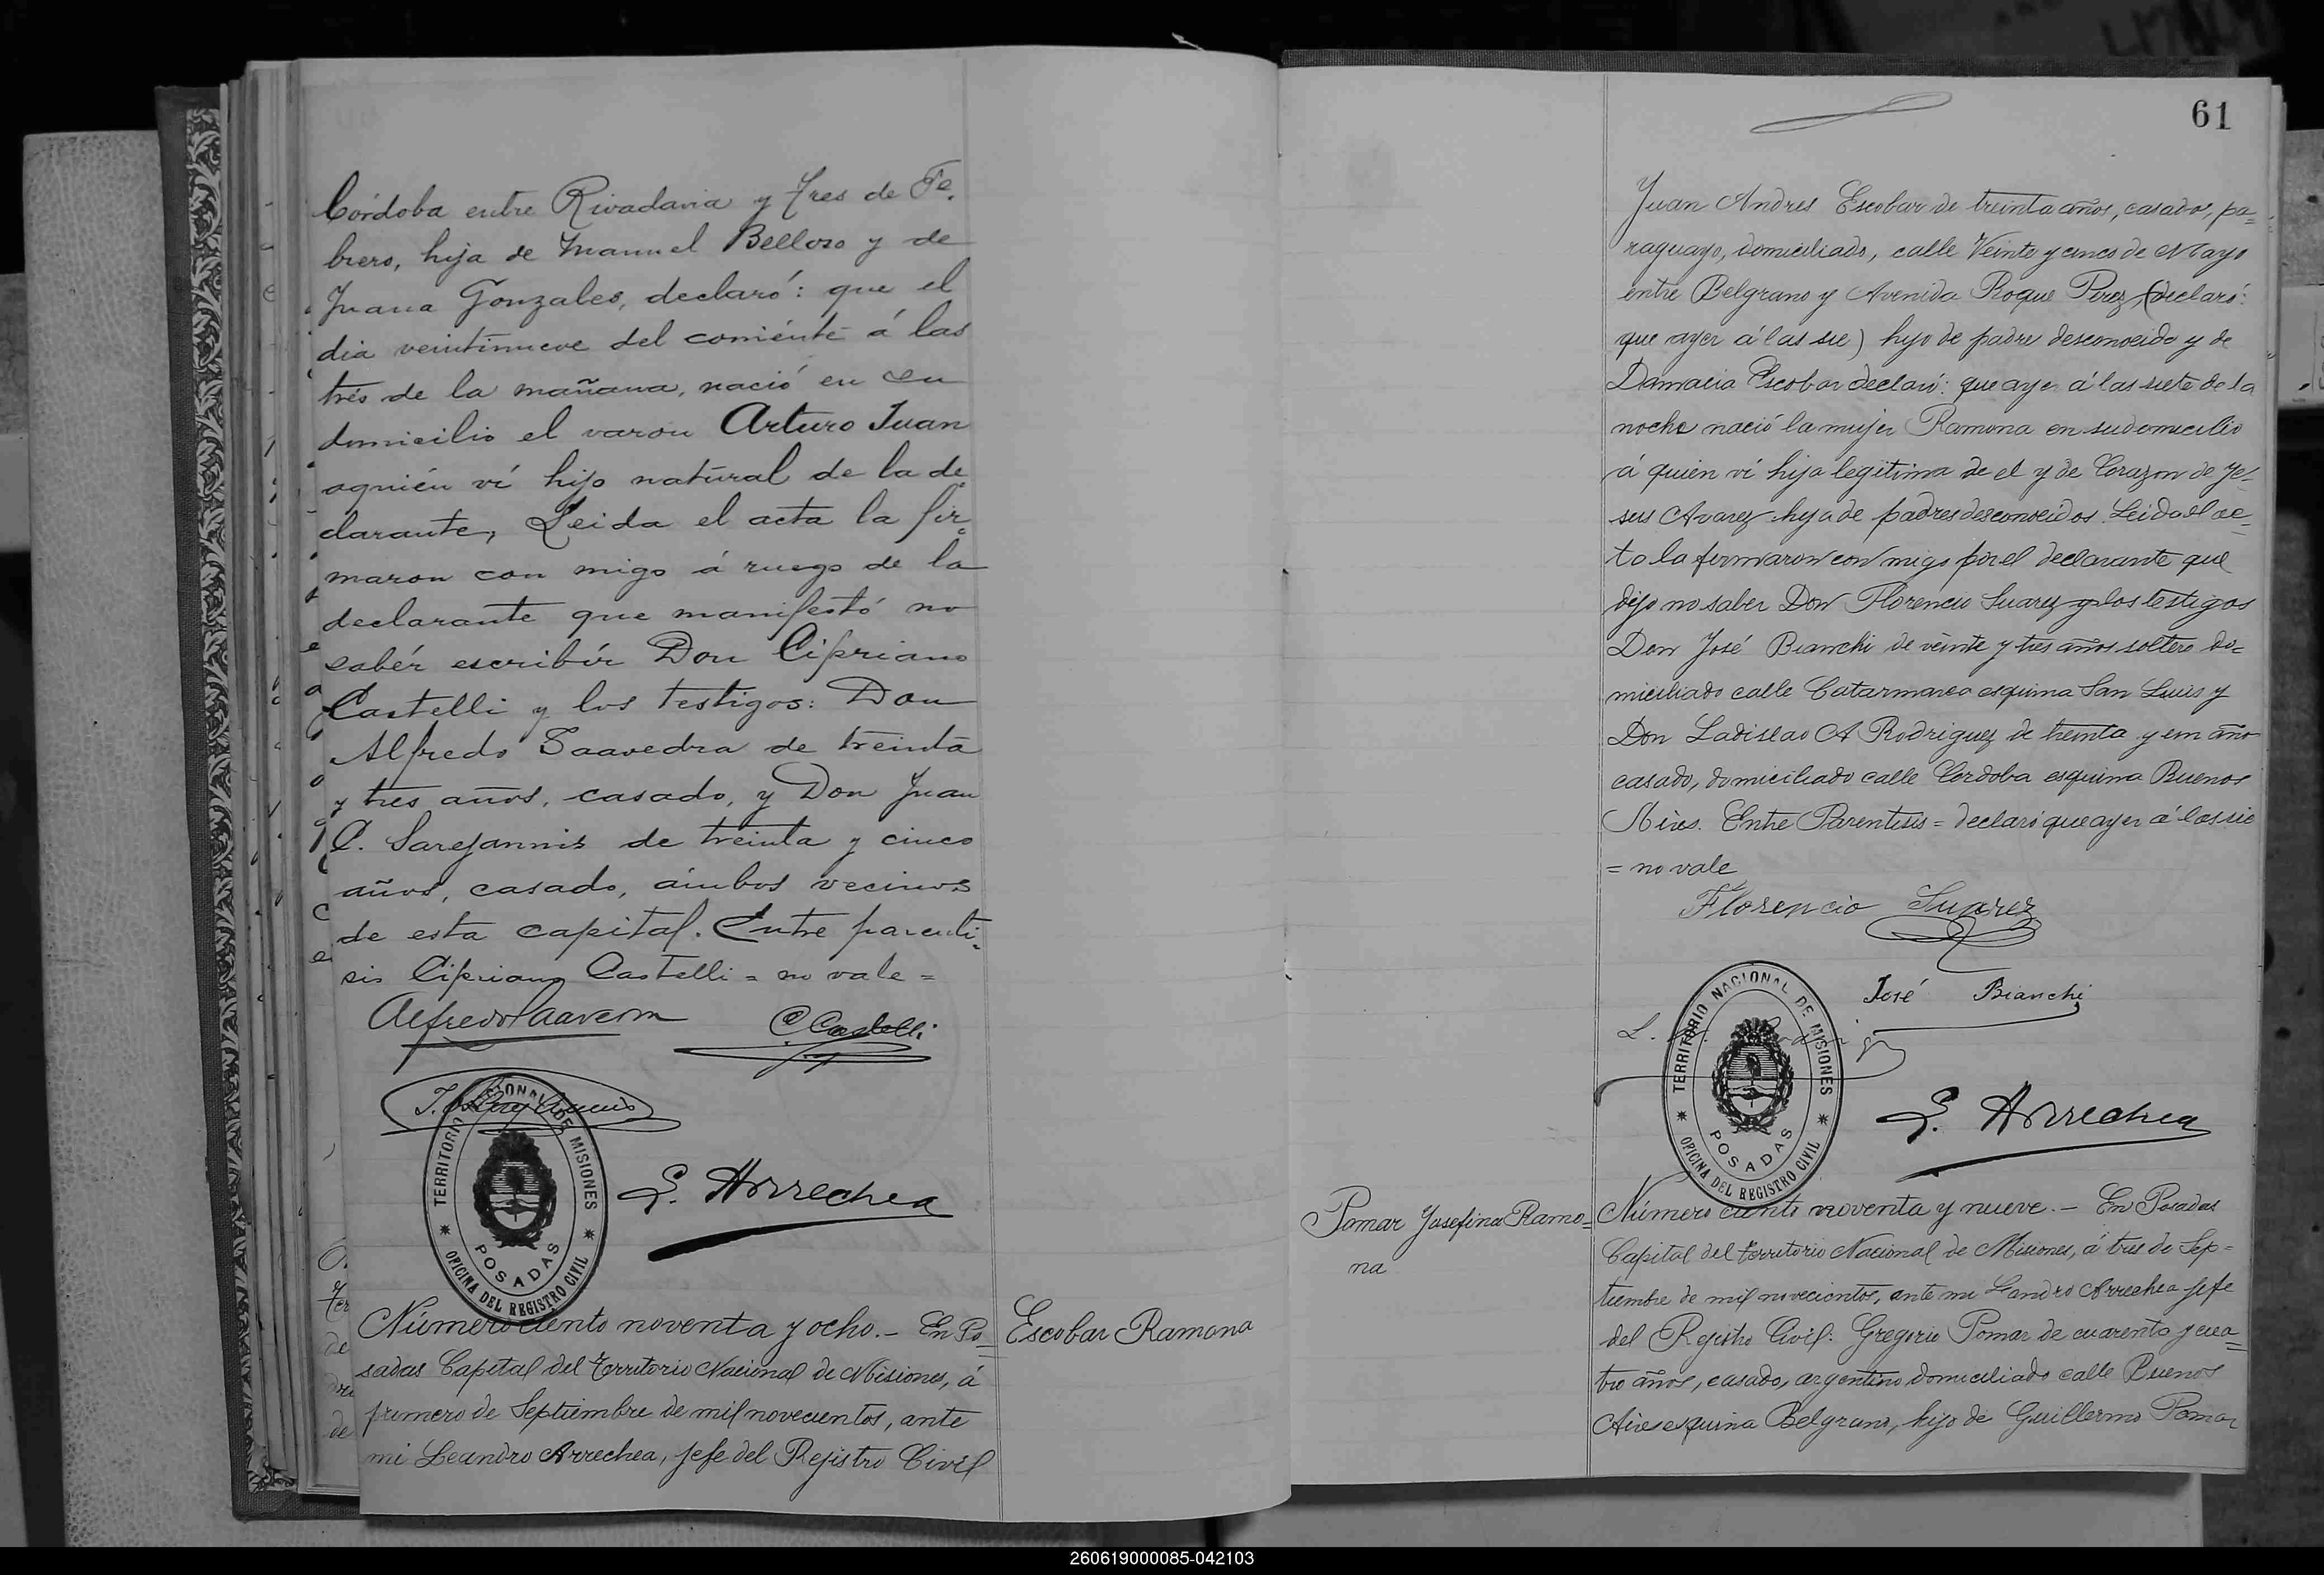 Córdoba entre Rivadavia y Tres de Fe-
brero, hija de Manuel Belloso y de
Juana Gonzales, declaró: que el
dia veintinueve del corriente á las
trés de la mañana, nació en su
domicilio el varon Arturo Juan
aquién ví hijo natural de la de-
clarante, Leida el acta la fir-
maron con migo á ruego de la
declarante que manifestó no
sabér escribír Don Cipriano
Castelli y los testigos: Don
Alfredo Saavedra de treinta
y tres años, casado, y Don Juan
C. de treinta y cinco
años, casado, ámbos vecinos
de esta capital. Entre parenté-
sis Cipriano Castelli = no vale =
Alfredo Saavedra C Castelli
TERRITORIO NACIONAL DE MISIONES
POSADAS
OFICINA DEL REGISTRO CIVIL
L. Arrechea
Número ciento noventa y ocho.- En Po=
Escobar Ramona
sadas Capital del Territorio Nacional de Misiones, á
primero de Septiembre de mil novecientos, ante
mi Leandro Arrechea, Jefe del Rejistro Civil
61
Juan Andres Escobar de treinta años, casado, pa=
raguayo, domiciliado, calle Veinte y cinco de Mayo
entre Belgrano y Avenida Roque Perez (declaró:
que ayer á las sie) hijo de padre desconocido y de
Damacia Escobar declaró: que ayer á las siete de la
noche nació la mujer Ramona en su domicilio
á quien ví hija legitima de el y de Corazon de Je-
sus Avarez hija de padres desconocidos. Leida el ac-
ta la firmaron con migo por el declarante que
dijo no saber Don Florencio Suarez y los testigos
Don José Bianchi de veinte y tres años soltero do=
miciliado calle Catarmarca esquina San Luis y
Don Ladislao A Rodriguez de treinta y un año
casado, domiciliado calle Cordoba esquina Buenos
Aires. Entre Parentisis = declaró que ayer á las sie
= no vale
Florencio Suarez
José Bianchi
TERRITORIO NACIONAL DE MISIONES
POSADAS
OFICINA DEL REGISTRO CIVIL
L. Arrechea
Pomar Josefina Ramo=
na
Número ciento noventa y nueve.- En Posadas
Capital del Territorio Nacional de Misiones, á tres de Sep=
tiembre de mil novecientos, ante mi Leandro Arrechea Jefe
del Rejistro Civil: Gregorio Pomar de cuarenta y cua=
tro años, casado, argentino domiciliado calle Buenos
Aires esquina Belgrano, hijo de Guillermo Pomar
260619000085-042103